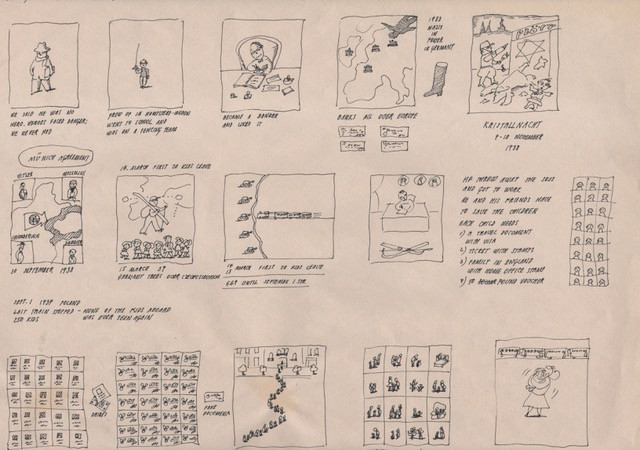 HE SAID HE WAS NO
HERO. HEROES FACED DANGER;
HE NEVER HAD
GREW UP IN HAMPSTEAD-
WENT TO SCHOOL AND
WAS ON A FENCING TEAM
BECAME A BANKER
AND LIKED IT
BANKS ALL OVER EUROPE
1933
NAZIS
IN
POWER
IN GERMANY
KRISTALLNACHT
9-10 NOVEMBER
1938
MUNICH AGREEMENT
HITLER
MUSSOLINI
CHAMBERLAIN
30 SEPTEMBER 1938
14. MARCH FIRST 20 KIDS LEAVE
15 MARCH 39
GERMANY TAKES OVER CZECHOSLOVAKIA
MARCH FIRST 20 KIDS LEAVE
669 UNTIL SEPTEMBER 1ST
AND GOT TO WORK
HE AND HIS FRIENDS HAVE
TO SAVE THE CHILDREN
EACH CHILD NEEDS
1) A TRAVEL DOCUMENT
WITH VISA
2) TICKET WITH STAMPS
3) FAMILY IN ENGLAND
WITH HOME OFFICE STAMP
4) 50 POUND VOUCHER
SEPT. 1 1939 POLAND
LAST TRAIN STOPPED - NONE OF THE KIDS ABOARD
250 KIDS WAS EVER SEEN AGAIN
BRIBES
FAKE
DOCUMENTS